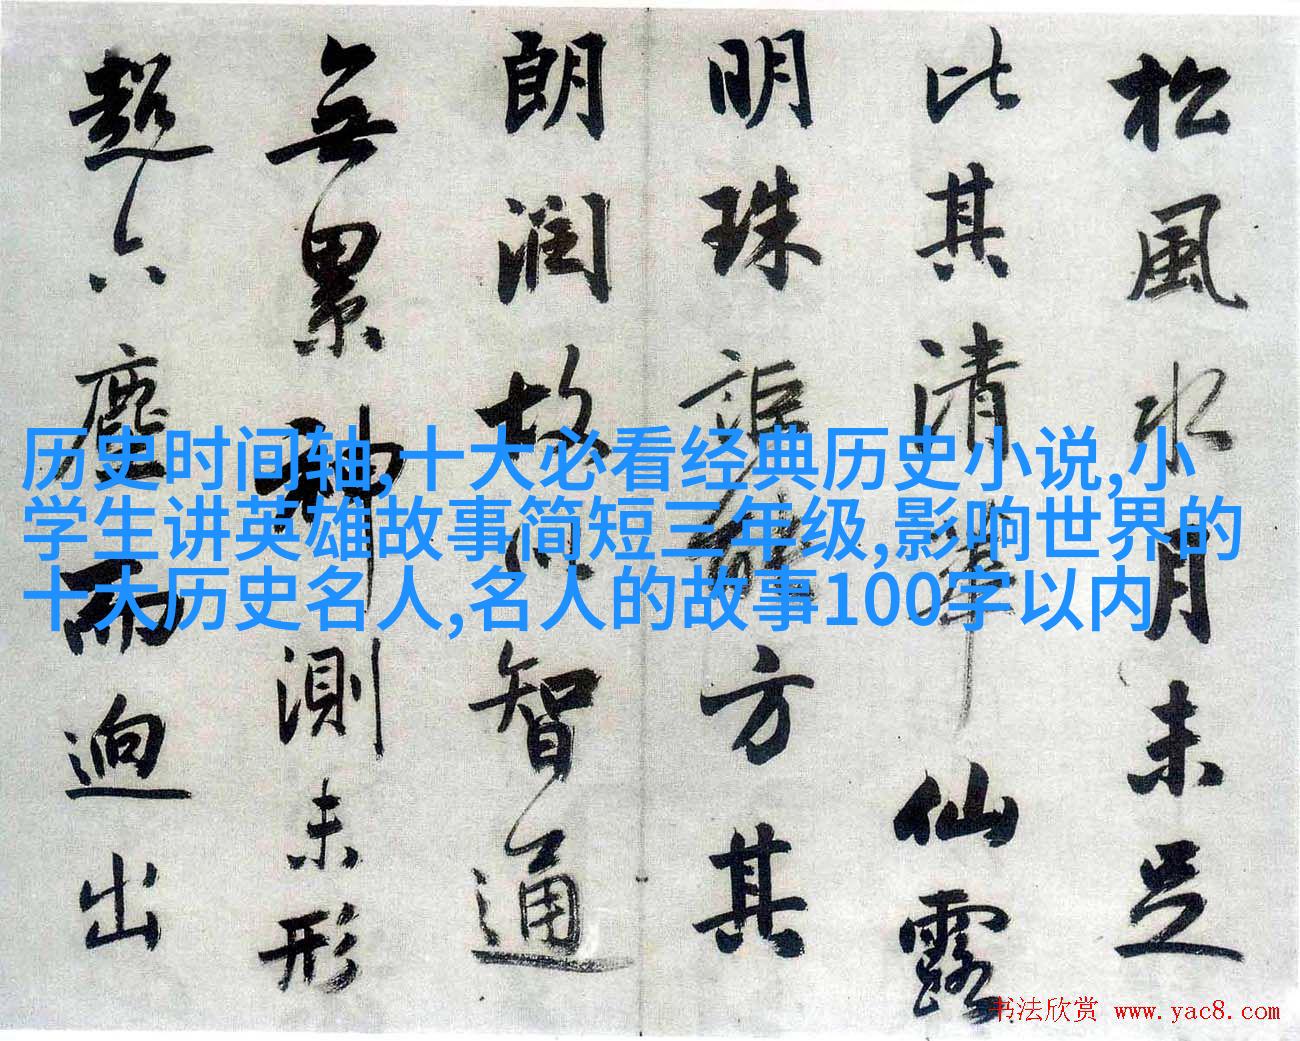 松風水月未足
比其清華仙露
明珠詎能方其
朗潤故以智通
無累神測未形
超六塵而迥出
历史时间轴,十大必看经典历史小说,小
学生讲英雄故事简短三年级,影响世界的
十大历史名人,名人的故事100字以内
书法欣赏 www.yac8.com